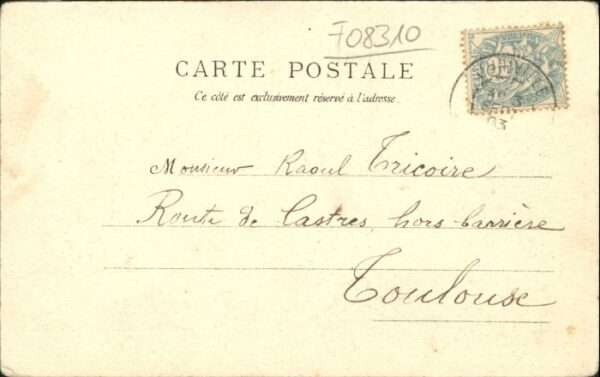 F08310
CARTE POSTALE
Ce côté est exclusivement réservé à l'adresse
03
Monsieur Raoul Tricoire
Route de Castres, hors-barrière
Toulouse